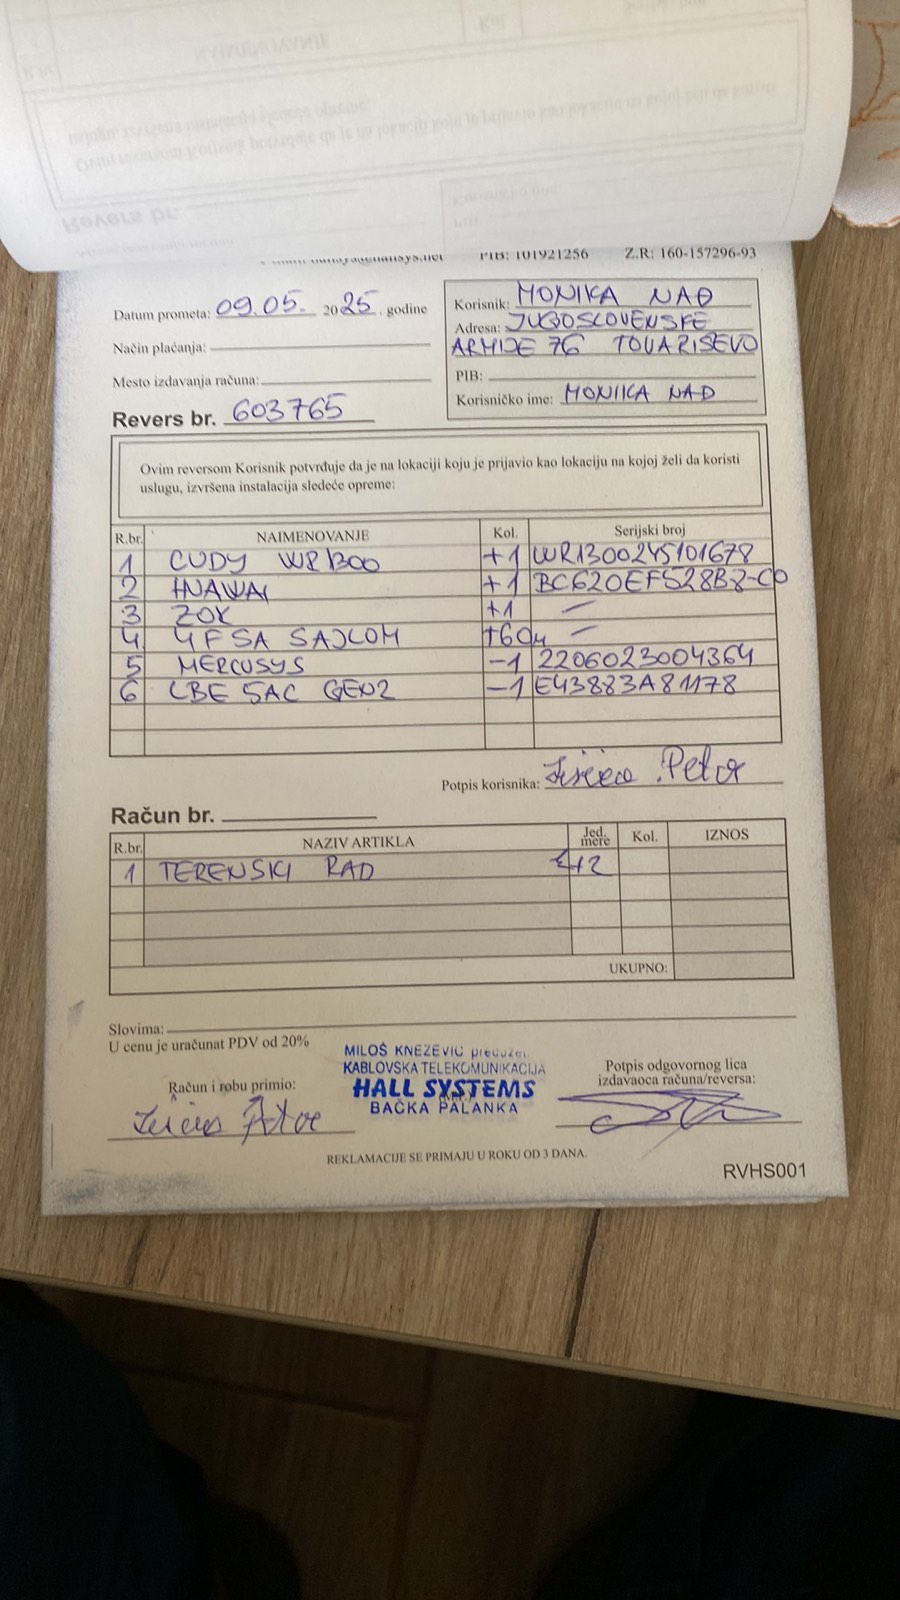 PIB: 101921256 Z.R: 160-157296-93
Datum prometa: 09.05. 2025. godine
Način plaćanja:
Mesto izdavanja računa:
Revers br. 603765
Korisnik: MONIKA NAĐ
Adresa: JUGOSLOVENSKE
ARMIJE 76 TOVARIŠEVO
PIB:
Korisničko ime: MONIKA NAD
Ovim reversom Korisnik potvrđuje da je na lokaciji koju je prijavio kao lokaciju na kojoj želi da koristi
uslugu, izvršena instalacija sledeće opreme:
R.br. NAIMENOVANJE Kol. Serijski broj
1 CUDY WR1300 +1 WR1300245101678
2 HUAWAI +1 BC620EF528B8-C0
3 ZOK +1 –
4 4F SA SAJLOM +60m –
5 MERCUSYS -1 2206023004364
6 LBE 5AC GEN2 -1 E43883A81178
Potpis korisnika: Petar
Račun br.
R.br. NAZIV ARTIKLA Jed. mere Kol. IZNOS
1 TERENSKI RAD
UKUPNO:
Slovima:
U cenu je uračunat PDV od 20%
Račun i robu primio:
MILOŠ KNEŽEVIĆ preduzet.
KABLOVSKA TELEKOMUNIKACIJA
HALL SYSTEMS
BAČKA PALANKA
Potpis odgovornog lica
izdavaoca računa/reversa:
REKLAMACIJE SE PRIMAJU U ROKU OD 3 DANA.
RVHS001